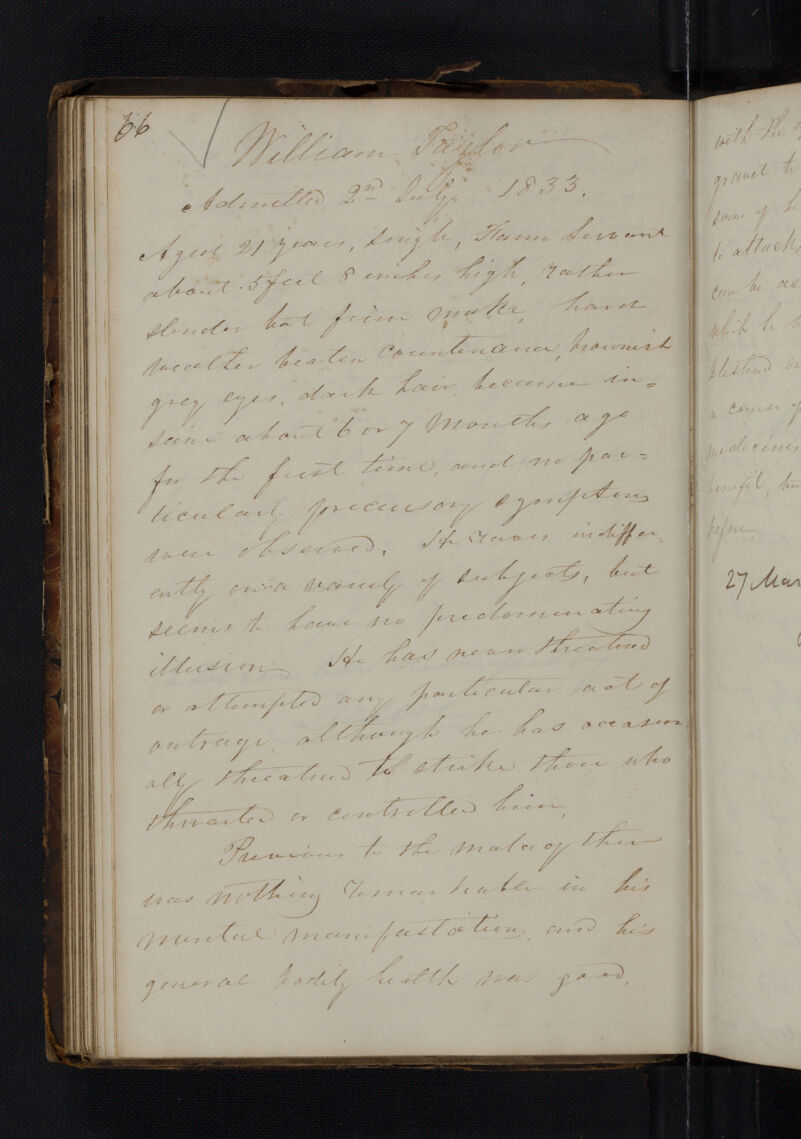 66
William Taylor
Admitted 2nd July 1833.
Aged 21 years, single, Farm Servant
about 5 feet 8 inches high, rather
slender but firm make, hard
weather beaten countenance, brownish
grey eyes, dark hair, became in=
sane about 6 or 7 Months ago
for the first time, and no par=
ticularly precursory symptoms
were observed. He raves indiffer=
ently on a variety of subjects, but
seems to have no predominating
illusion. He has never threatened
or attempted any particular act of
outrage, although he has occasion
ally threatened to strike those who
thwarted or controlled him.
Previous to the malady there
was nothing remarkable in his
mental manifestations, and his
general bodily health was good.
with the
gravel
some of
to attacks
can be
which he
a course of
medicines
benefit,
before.
27 Mar